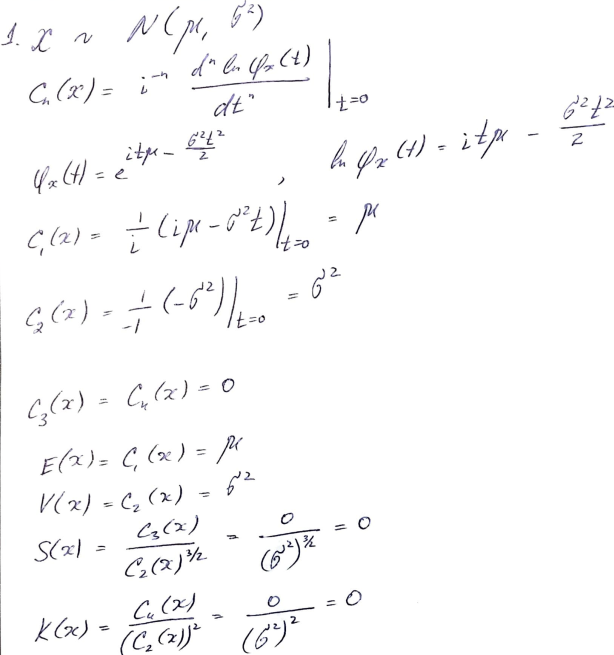 1. X ~ N(μ, σ²)
Cₙ(x) = i⁻ⁿ dⁿ ln φₓ(t) / dtⁿ |ₜ₌₀
φₓ(t) = e^(itμ − σ²t²/2) , ln φₓ(t) = itμ − σ²t²/2
C₁(x) = 1/i (iμ − σ²t)|ₜ₌₀ = μ
C₂(x) = 1/−1 (−σ²)|ₜ₌₀ = σ²
C₃(x) = C₄(x) = 0
E(x) = C₁(x) = μ
V(x) = C₂(x) = σ²
S(x) = C₃(x) / C₂(x)^(3/2) = 0 / (σ²)^(3/2) = 0
K(x) = C₄(x) / (C₂(x))² = 0 / (σ²)² = 0